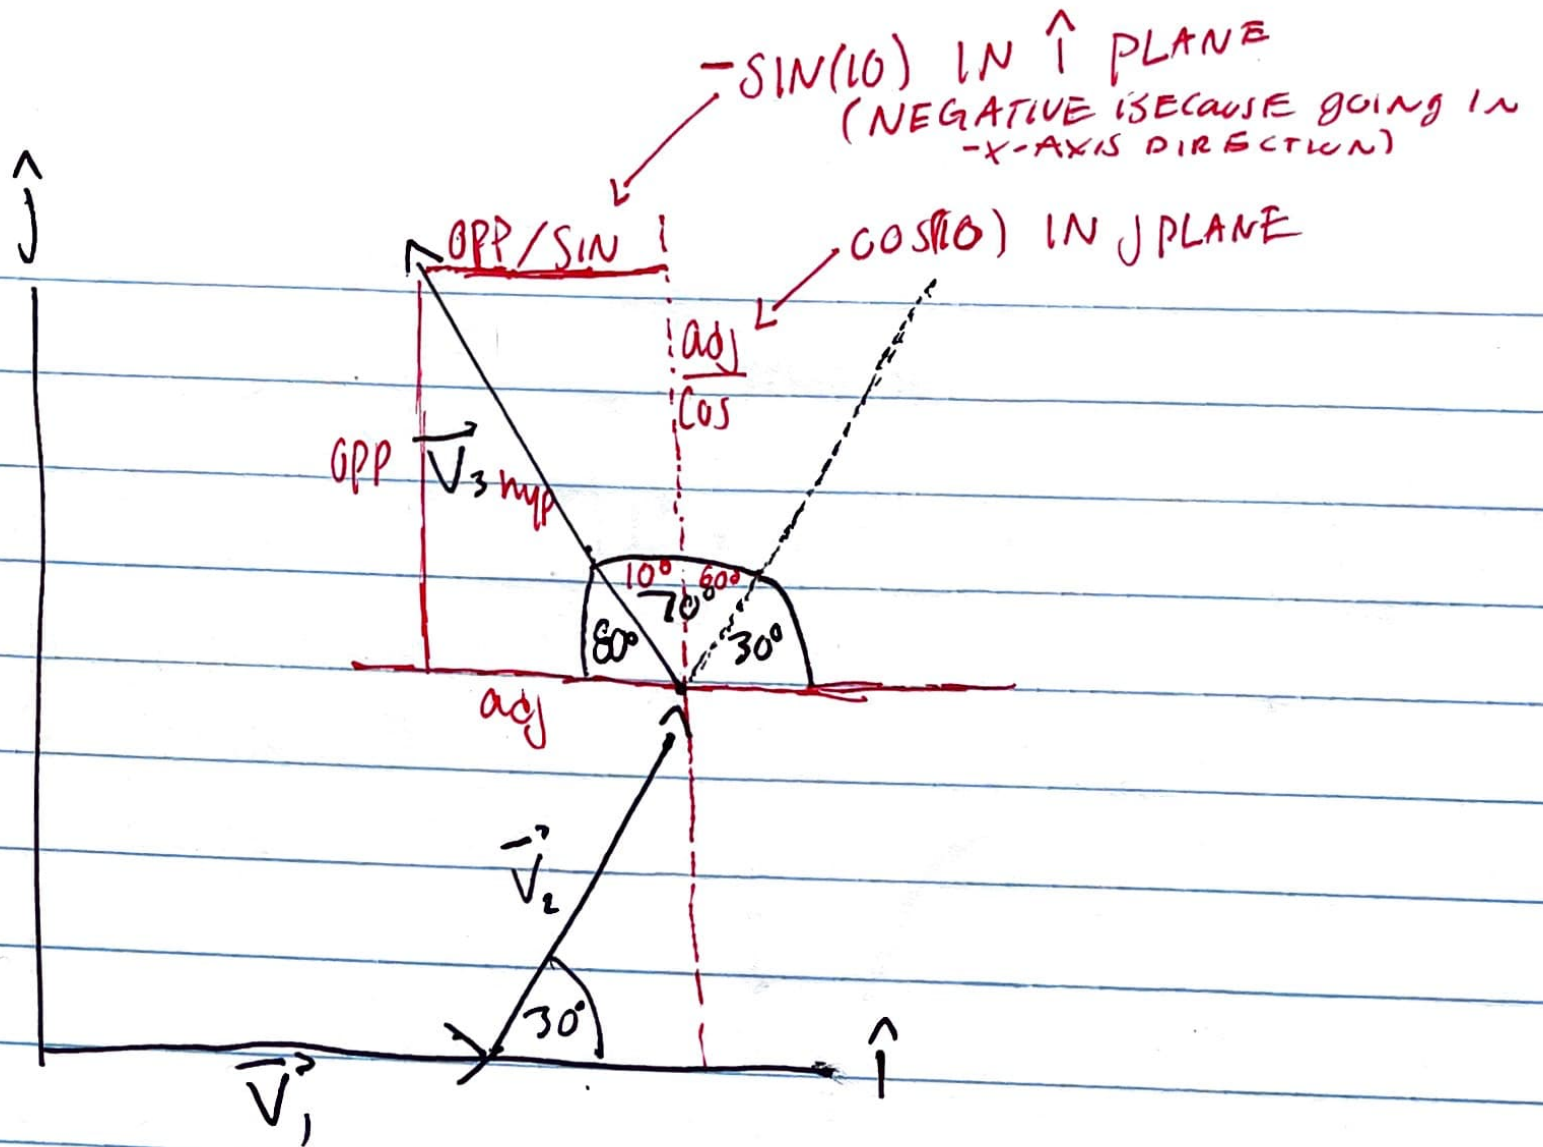 -SIN(10) IN î PLANE
(NEGATIVE BECAUSE GOING IN
-X-AXIS DIRECTION)
ĵ
OPP/SIN
COS(10) IN J PLANE
adj
COS
OPP
V⃗₃
hyp
10° 60°
70°
80°
30°
adj
V⃗₂
30°
î
V⃗₁